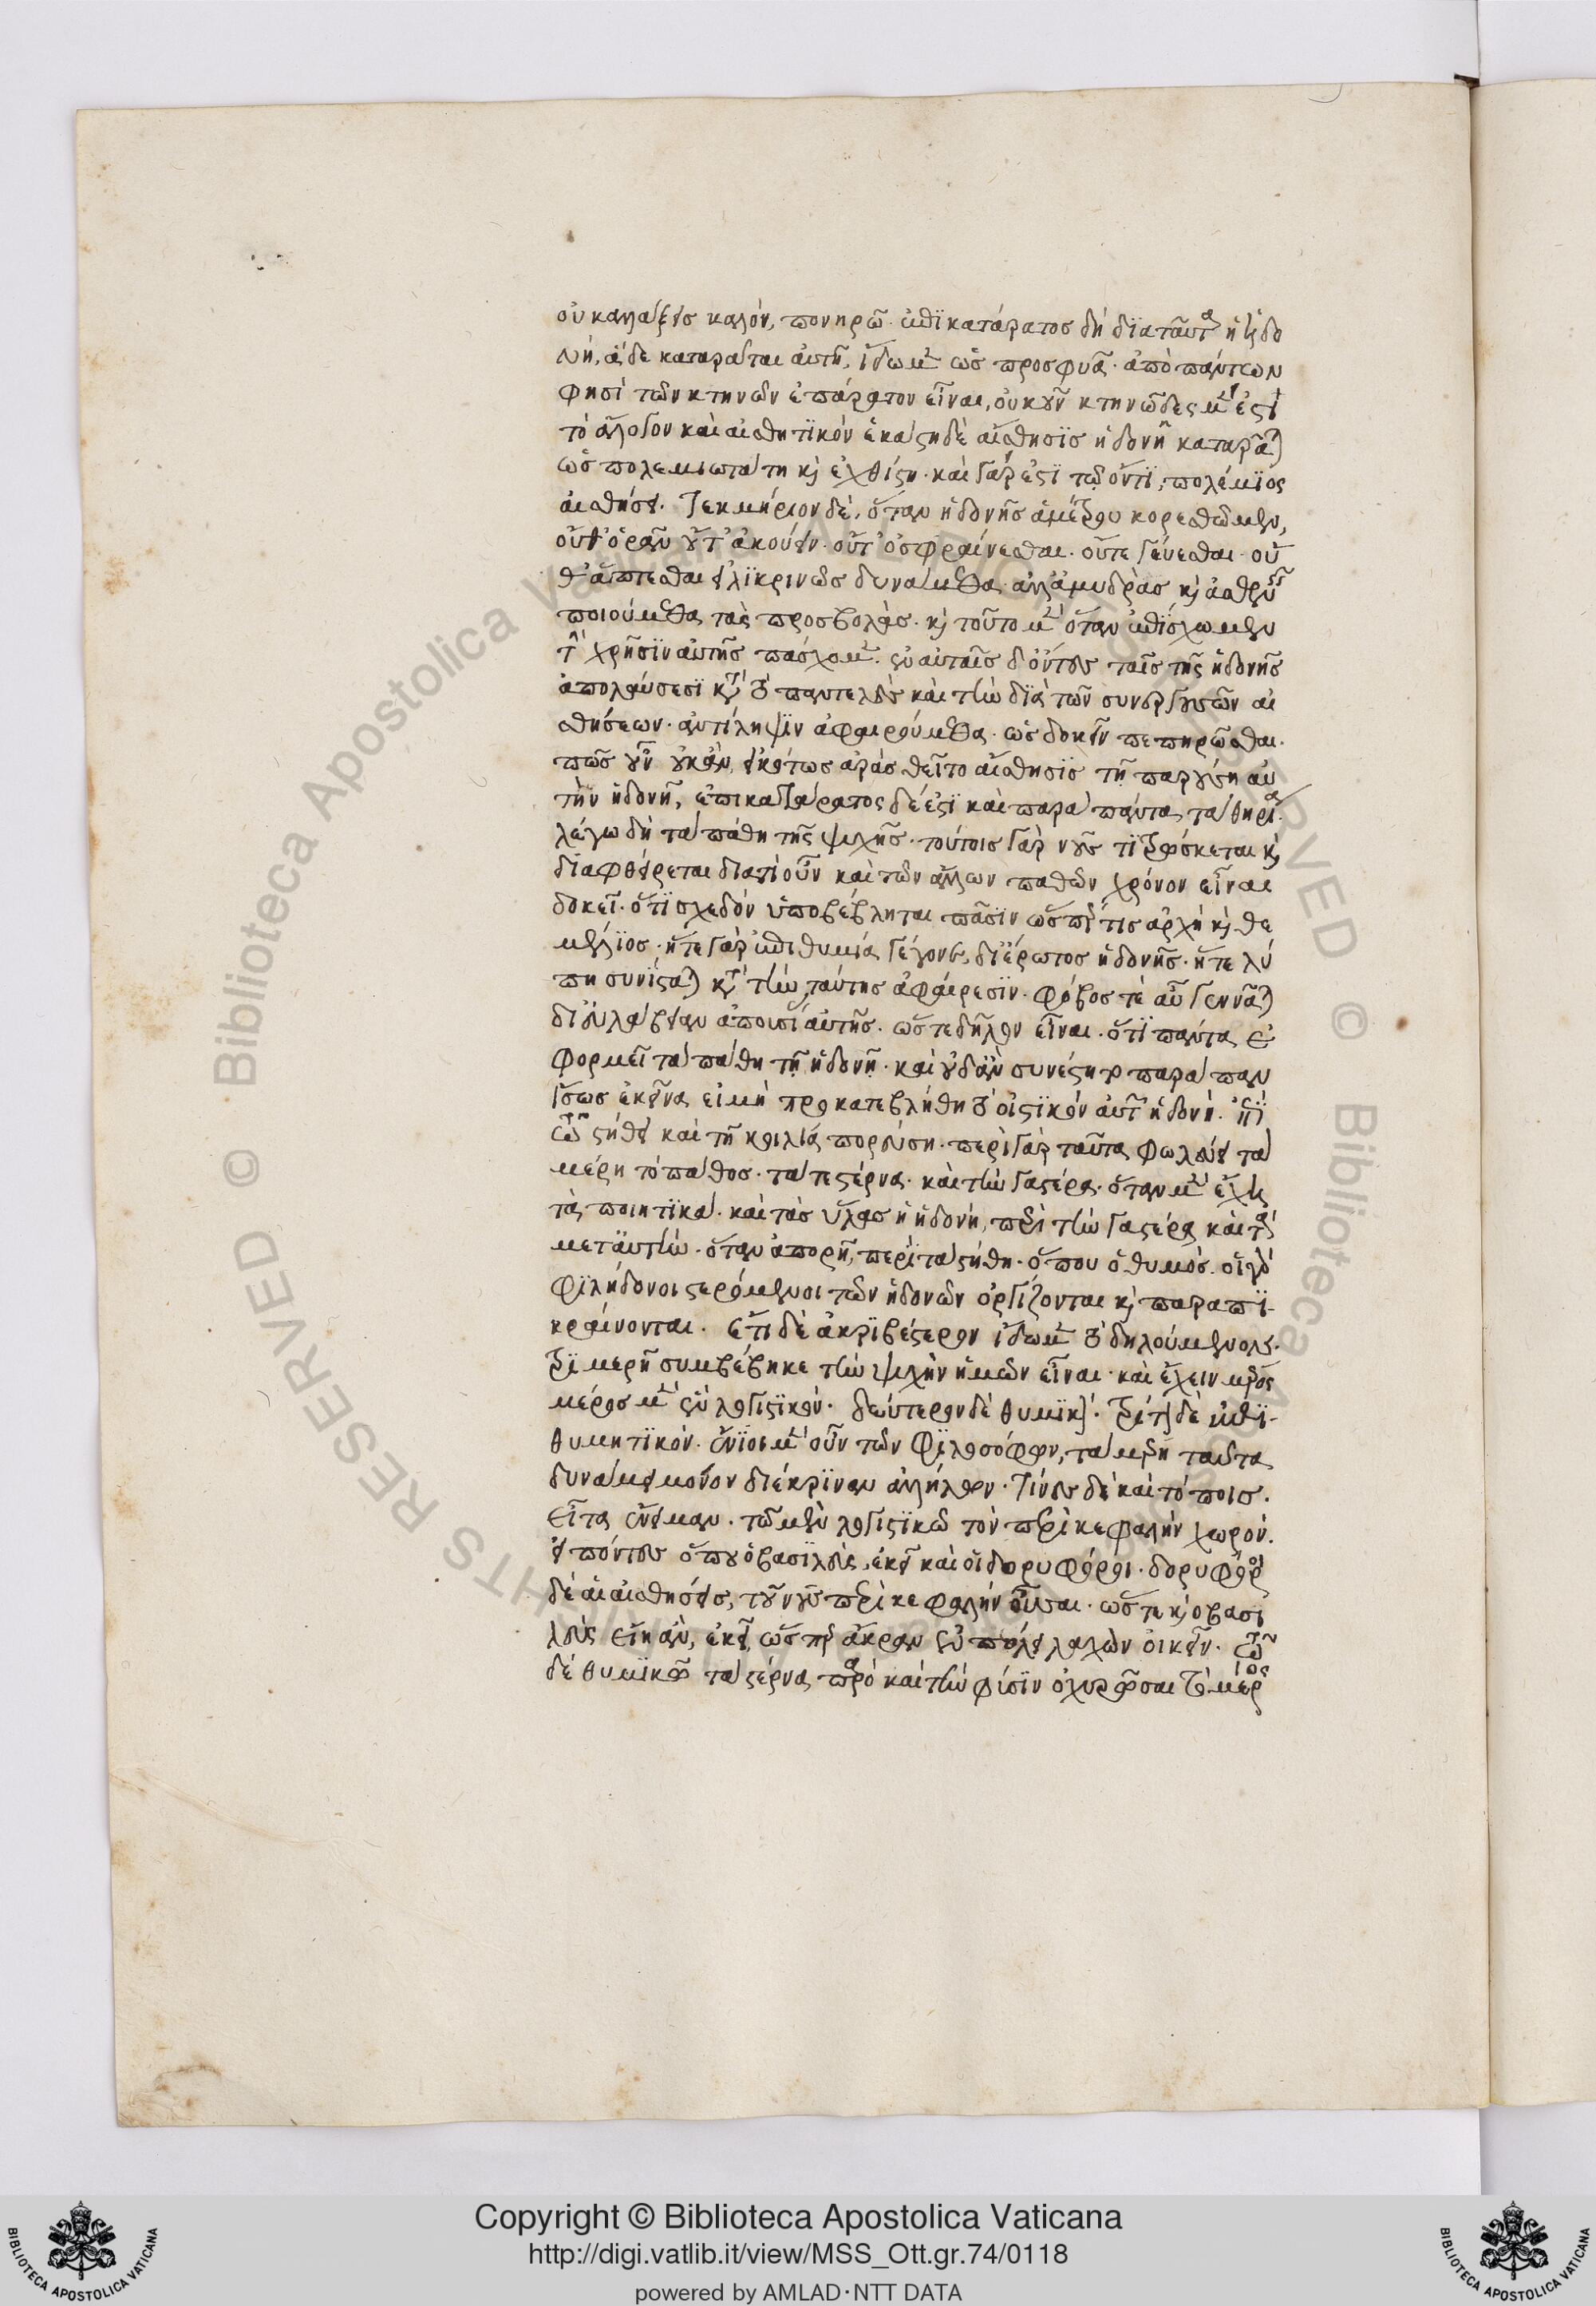 οὐκ ἀλλάξεις καλόν, πονηρῶ. ἐπικατάρατος δὴ διὰ ταῦτα ἡ ἡδο
νή, ἃ δὲ καταρᾶται αὐτῆ, ἴδωμεν ὡς προσφυᾶ. ἀπὸ πάντων
φησὶ τῶν κτηνῶν ἐπάρατον εἶναι, οὐκοῦν κτηνῶδες μέν ἐστι
τὸ ἄλογον καὶ αἰσθητικόν ἑκάστη δὲ αἴσθησις ἡδονὴν καταρᾶται
ὡς πολεμιωτάτη καὶ ἐχθίστη. καὶ γάρ ἐστι τῶ ὄντι, πολέμιος
αἰσθήσει. τεκμήριον δέ, ὅταν ἡδονῆς ἀμέτρου κορεσθῶμεν,
οὔθ' ὁρᾶν οὔτ' ἀκούειν. οὔτ' ὀσφραίνεσθαι. οὔτε γεύεσθαι. οὔ
θ' ἅπτεσθαι εἰλικρινῶς δυνάμεθα. ἀλλ' ἀμυδρὰς καὶ ἀσθενεῖς
ποιούμεθα τὰς προσβολάς. καὶ τοῦτο μὲν ὅταν ἐπίσχωμεν
τὴν χρῆσιν αὐτῆς πάσχομεν. ἐν αὐταῖς δ' ὄντες ταῖς τῆς ἡδονῆς
ἀπολαύσεσι κατὰ τὸ παντελὲς καὶ τὴν διὰ τῶν συνεργουσῶν αἰ
σθήσεων. ἀντίληψιν ἀφαιρούμεθα. ὡς δοκεῖν πεπηρῶσθαι.
πῶς οὖν οὐκ ἂν, εἰκότως ἀρὰς θεῖτο αἴσθησις τῆ πηρούση αὐ
τὴν ἡδονῆ, ἐπικατάρατος δέ ἐστι καὶ παρὰ πάντα τὰ θηρία.
λέγω δὴ τὰ πάθη τῆς ψυχῆς. τούτοις γὰρ νοῦς τιτρώσκεται καὶ
διαφθείρεται διατί οὖν καὶ τῶν ἄλλων παθῶν χρόνον εἶναι
δοκεῖ. ὅτι σχεδὸν ὑποβέβληται πᾶσιν ὥσπερ τις ἀρχὴ καὶ θε
μέλιος. ἥτε γὰρ ἐπιθυμία γέγονε, δι' ἔρωτος ἡδονῆς. ἥτε λύ
πη συνίσταται κατὰ τὴν ταύτης ἀφαίρεσιν. φόβος τὲ αὖ γεννᾶται
δι' εὐλάβειαν ἀπουσίας αὐτῆς. ὥστε δῆλον εἶναι. ὅτι πάντα ἐ
φορμεῖ τὰ πάθη τῆ ἡδονῆ. καὶ οὐδ' ἂν συνέστη τὸ παράπαν
ἴσως ἐκεῖνα εἰ μὴ προκατεβλήθη τὸ οἰστικὸν αὐτῶν ἡδονή. ἐπὶ
τῶ στήθει καὶ τῆ κοιλία πορεύση. περὶ γὰρ ταῦτα φωλεύει τὰ
μέρη τὸ πάθος. τά τε στέρνα. καὶ τὴν γαστέρα. ὅταν μὲν ἔχη
τὰ ποιητικὰ. καὶ τὰς ὕλας ἡ ἡδονή, περὶ τὴν γαστέρα καὶ τὰ
μετ' αὐτήν. ὅταν ἀπορῆ, περὶ τὰ στήθη. ὅπου ὁ θυμός. οἱ γὰρ
φιλήδονοι στερόμενοι τῶν ἡδονῶν ὀργίζονται καὶ παραπι
κραίνονται. ἔτι δὲ ἀκριβέστερον ἴδωμεν τὸ δηλούμενον.
τριμερῆ συμβέβηκε τὴν ψυχὴν ἡμῶν εἶναι. καὶ ἔχειν μέρος
μέρος μὲν ἓν λογιστικόν. δεύτερον δὲ θυμικόν. τρίτον δὲ ἐπι
θυμητικόν. ἔνιοι μὲν οὖν τῶν φιλοσόφων, τὰ μέρη ταῦτα
δυνάμει μόνον διέκριναν ἀλλήλων. τινὲς δὲ καὶ τόποις.
εἶτα ἔνειμαν. τῶ μὲν λογιστικῶ τὸν περὶ κεφαλὴν χῶρον.
εἰπόντες ὅπου ὁ βασιλεὺς, ἐκεῖ καὶ οἱ δορυφόροι. δορυφόροι
δὲ αἱ αἰσθήσεις, τοῦ νοῦ περὶ κεφαλὴν οὖσαι. ὥστε καὶ ὁ βασι
λεὺς εἴη ἂν, ἐκεῖ, ὥσπερ ἄκραν ἐν πόλει λαχὼν οἰκεῖν. τῶ
δὲ θυμικῶ τὰ στέρνα παρὸ καὶ τὴν φύσιν ὀχυρῶσαι τὸ μέρος
Copyright © Biblioteca Apostolica Vaticana
http://digi.vatlib.it/view/MSS_Ott.gr.74/0118
powered by AMLAD·NTT DATA